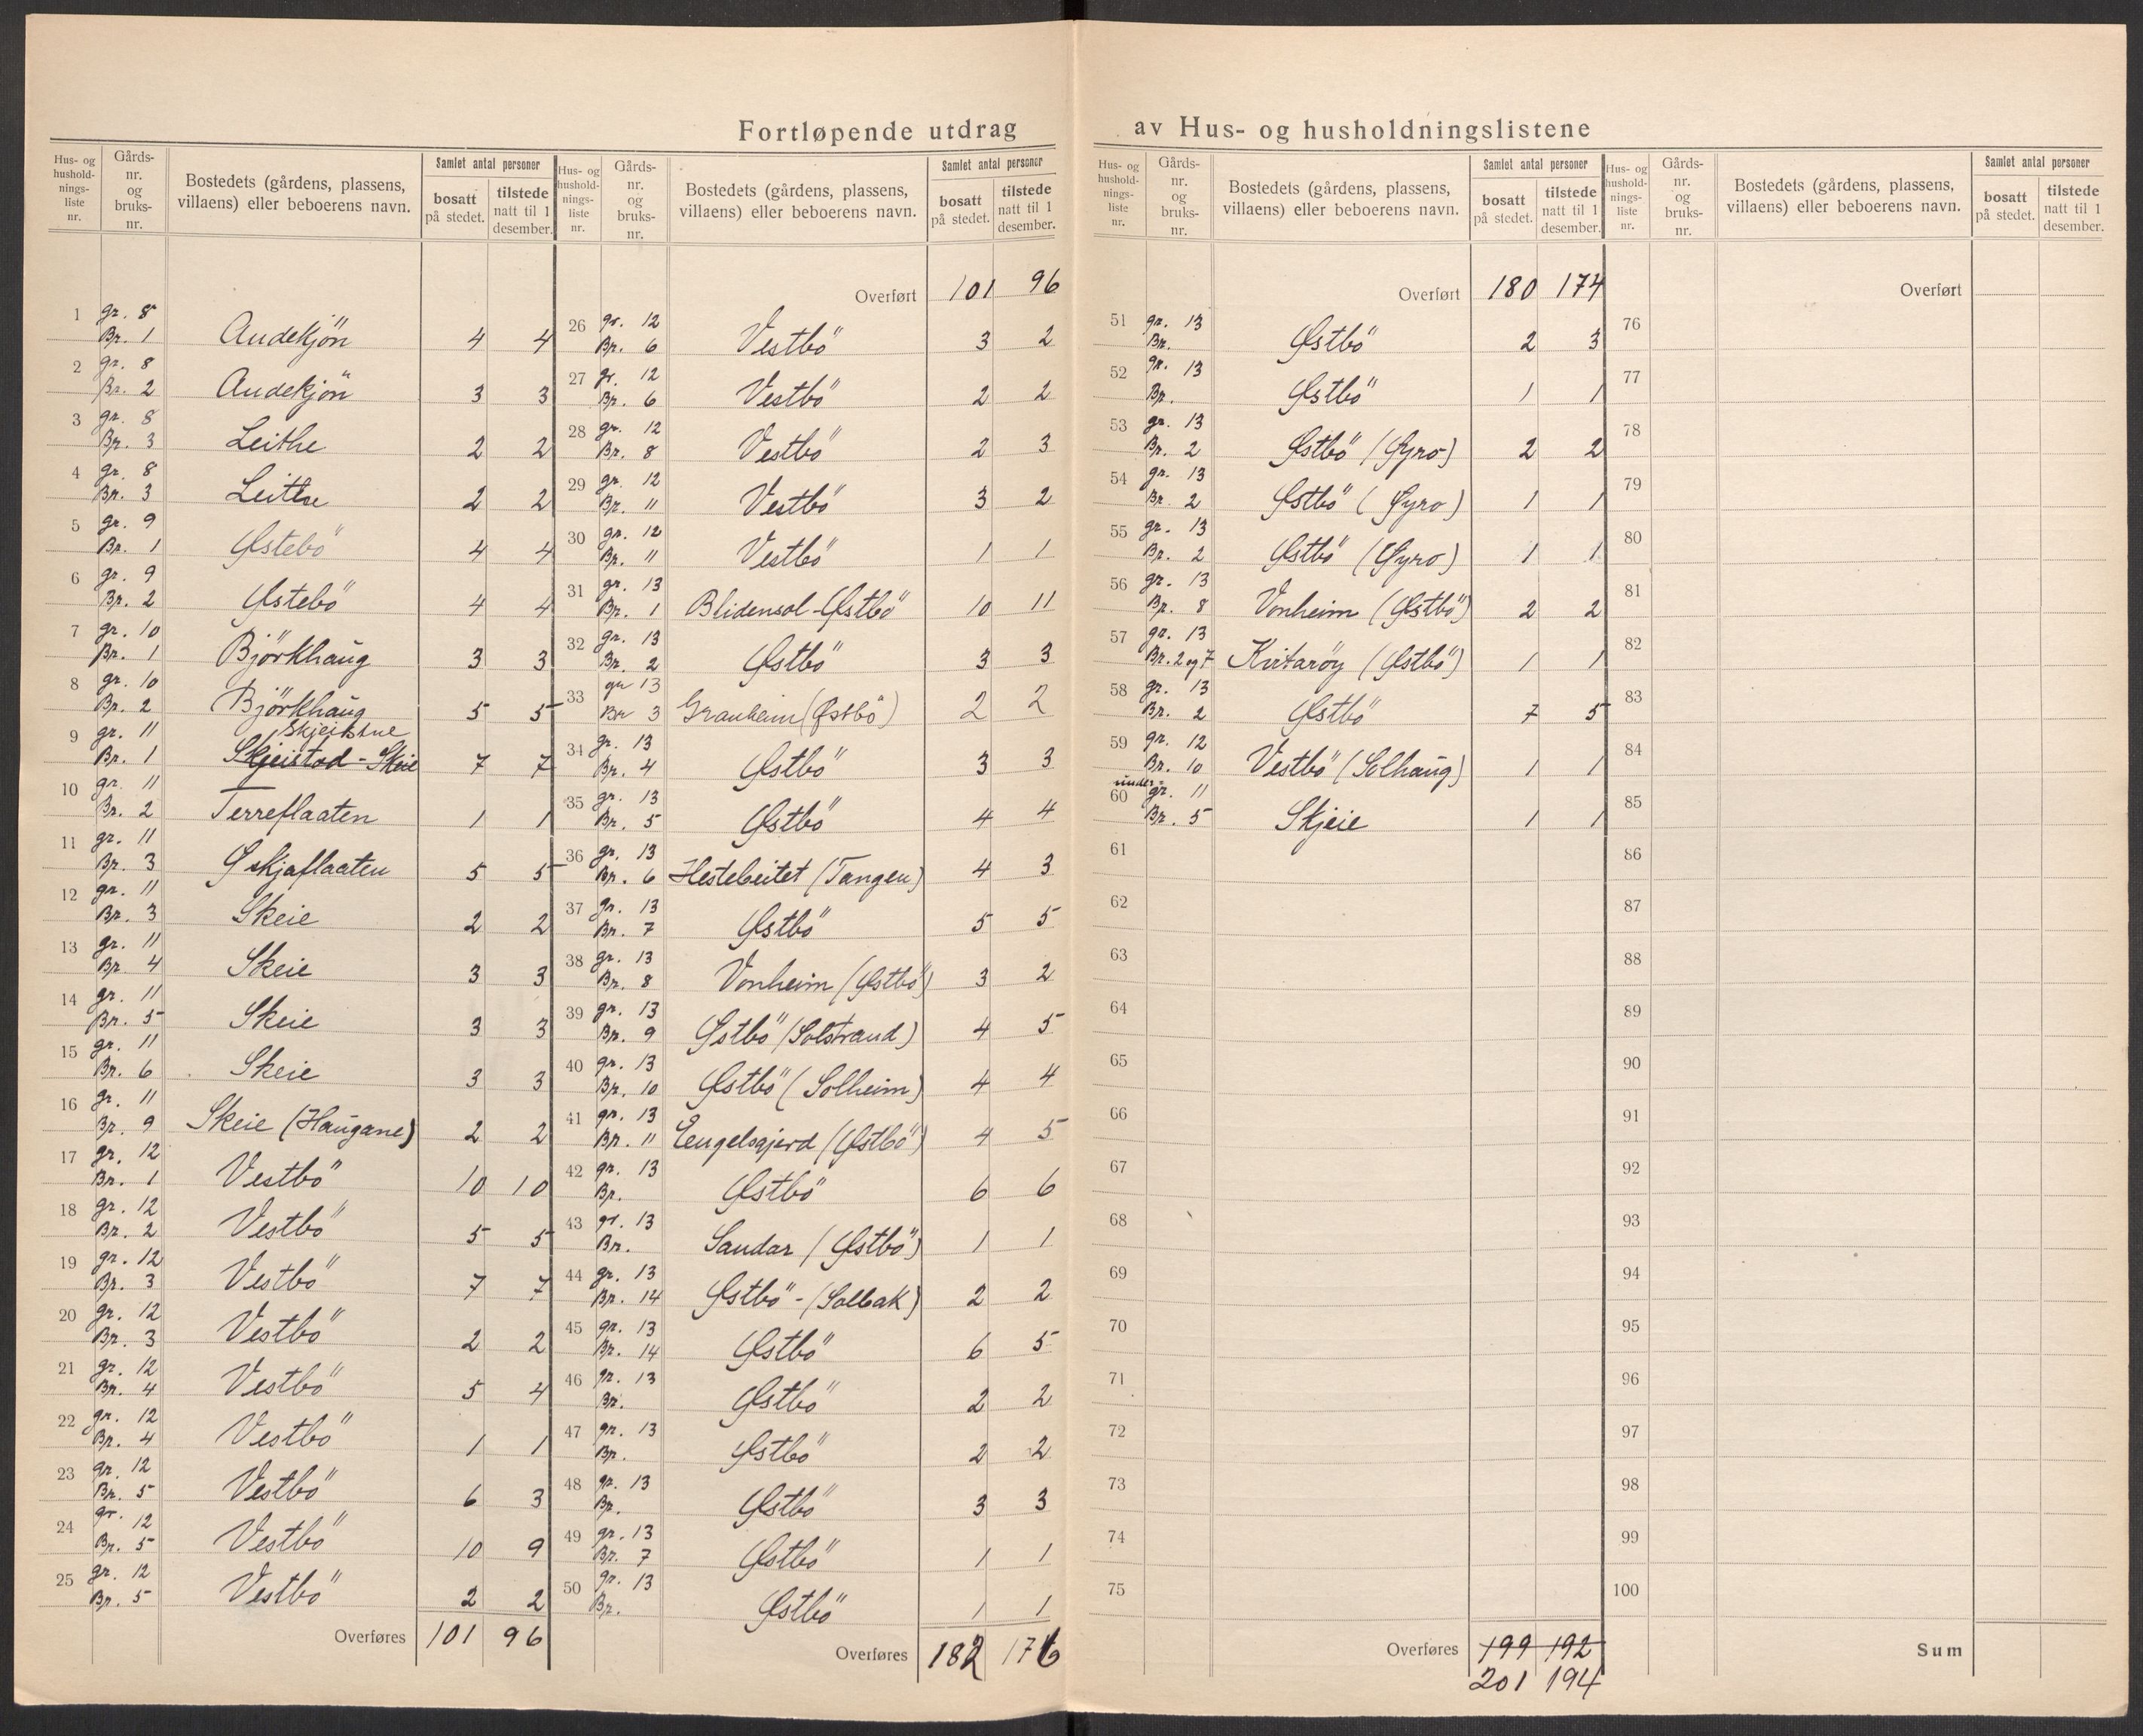 Fortløpende utdrag av Hus- og husholdningslistene
Hus- og husholdningsliste nr. | Gårds-nr. og bruks-nr. | Bostedets (gårdens, plassens, villaens) eller beboerens navn. | Samlet antal personer: bosatt på stedet. | tilstede natt til 1 desember.
1 gr. 8 Br. 1 Audekjön 4 4
2 gr. 8 Br. 2 Audekjön 3 3
3 gr. 8 Br. 3 Leithe 2 2
4 gr. 8 Br. 3 Leithe 2 2
5 gr. 9 Br. 1 Østebö 4 4
6 gr. 9 Br. 2 Østebö 4 4
7 gr. 10 Br. 1 Björkhaug 3 3
8 gr. 10 Br. 2 Björkhaug 5 5
9 gr. 11 Br. 1 Skjeistad - Skeie 7 7
10 gr. 11 Br. 2 Terreflaaten 1 1
11 gr. 11 Br. 3 Øskjaflaaten 5 5
12 gr. 11 Br. 3 Skeie 2 2
13 gr. 11 Br. 4 Skeie 3 3
14 gr. 11 Br. 5 Skeie 3 3
15 gr. 11 Br. 6 Skeie 3 3
16 gr. 11 Br. 9 Skeie (Haugane) 2 2
17 gr. 12 Br. 1 Vestbö 10 10
18 gr. 12 Br. 2 Vestbö 5 5
19 gr. 12 Br. 3 Vestbö 7 7
20 gr. 12 Br. 3 Vestbö 2 2
21 gr. 12 Br. 4 Vestbö 5 4
22 gr. 12 Br. 4 Vestbö 1 1
23 gr. 12 Br. 5 Vestbö 6 3
24 gr. 12 Br. 5 Vestbö 10 9
25 gr. 12 Br. 5 Vestbö 2 2
Overføres 101 96
Hus- og husholdningsliste nr. | Gårds-nr. og bruks-nr. | Bostedets (gårdens, plassens, villaens) eller beboerens navn. | Samlet antal personer: bosatt på stedet. | tilstede natt til 1 desember.
Overført 101 96
26 gr. 12 Br. 6 Vestbö 3 2
27 gr. 12 Br. 6 Vestbö 2 2
28 gr. 12 Br. 8 Vestbö 2 3
29 gr. 12 Br. 11 Vestbö 3 2
30 gr. 12 Br. 11 Vestbö 1 1
31 gr. 13 Br. 1 Blidensol-Østbö 10 11
32 gr. 13 Br. 2 Østbö 3 3
33 gr 13 Br 3 Granheim (Østbö) 2 2
34 gr. 13 Br. 4 Østbö 3 3
35 gr. 13 Br. 5 Østbö 4 4
36 gr. 13 Br. 6 Hestebeitet (Tangen) 4 3
37 gr. 13 Br. 7 Østbö 5 5
38 gr. 13 Br. 8 Vonheim (Østbö) 3 2
39 gr. 13 Br. 9 Østbö (Solstrand) 4 5
40 gr. 13 Br. 10 Østbö (Solheim) 4 4
41 gr. 13 Br. 11 Eengelsgjerd (Østbö) 4 5
42 gr. 13 Br. Østbö 6 6
43 gr. 13 Br. Sandar (Østbö) 1 1
44 gr. 13 Br. 14 Østbö - (Solbak) 2 2
45 gr. 13 Br. 14 Østbö 6 5
46 gr. 13 Br. Østbö 2 2
47 gr. 13 Br. Østbö 2 2
48 gr. 13 Br. Østbö 3 3
49 gr. 13 Br. 7 Østbö 1 1
50 gr. 13 Br. Østbö 1 1
Overføres 182 176
Hus- og husholdningsliste nr. | Gårds-nr. og bruks-nr. | Bostedets (gårdens, plassens, villaens) eller beboerens navn. | Samlet antal personer: bosatt på stedet. | tilstede natt til 1 desember.
Overført 180 174
51 gr. 13 Br. Østbö 2 3
52 gr. 13 Br. Østbö 1 1
53 gr. 13 Br. 2 Østbö (Øyro) 2 2
54 gr. 13 Br. 2 Østbö (Øyro) 1 1
55 gr. 13 Br. 2 Østbö (Øyro) 1 1
56 gr. 13 Br. 8 Vonheim (Østbö) 2 2
57 gr. 13 Br. 2 og 7 Kvitarøy (Østbö) 1 1
58 gr. 13 Br. 2 Østbö 7 5
59 gr. 12 Br. 10 Vestbö (Solhaug) 1 1
60 under gr. 11 Br. 5 Skjeie 1 1
61
62
63
64
65
66
67
68
69
70
71
72
73
74
75
Overføres 199 192
201 194
Hus- og husholdningsliste nr. | Gårds-nr. og bruks-nr. | Bostedets (gårdens, plassens, villaens) eller beboerens navn. | Samlet antal personer: bosatt på stedet. | tilstede natt til 1 desember.
Overført
76
77
78
79
80
81
82
83
84
85
86
87
88
89
90
91
92
93
94
95
96
97
98
99
100
Sum